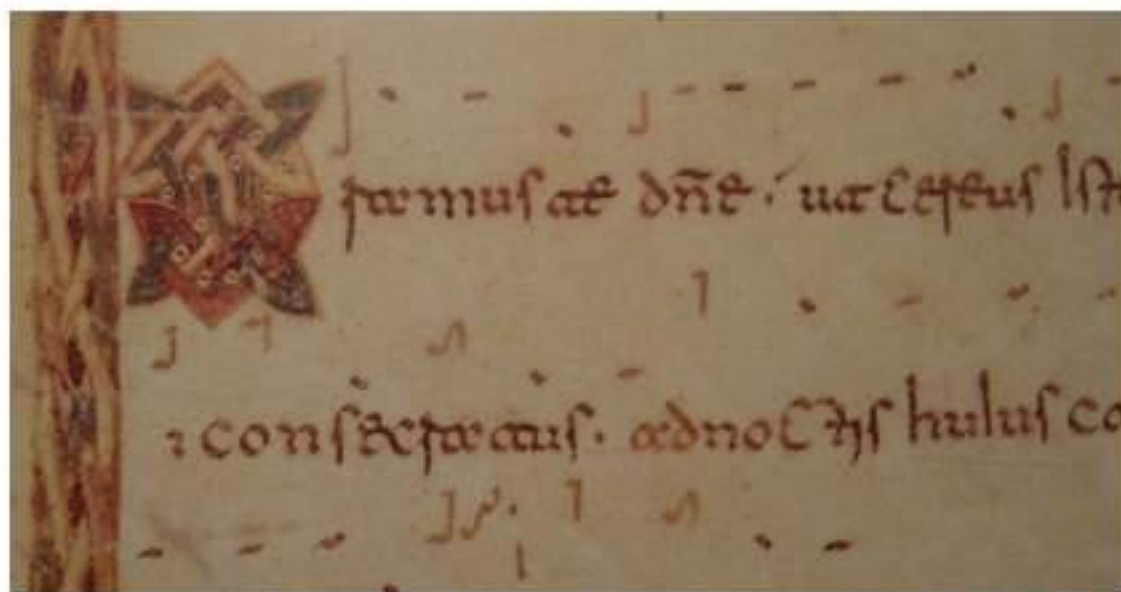 Oramus te dñe · ut cereus Ist
i consecratus · ad noctis huius ca